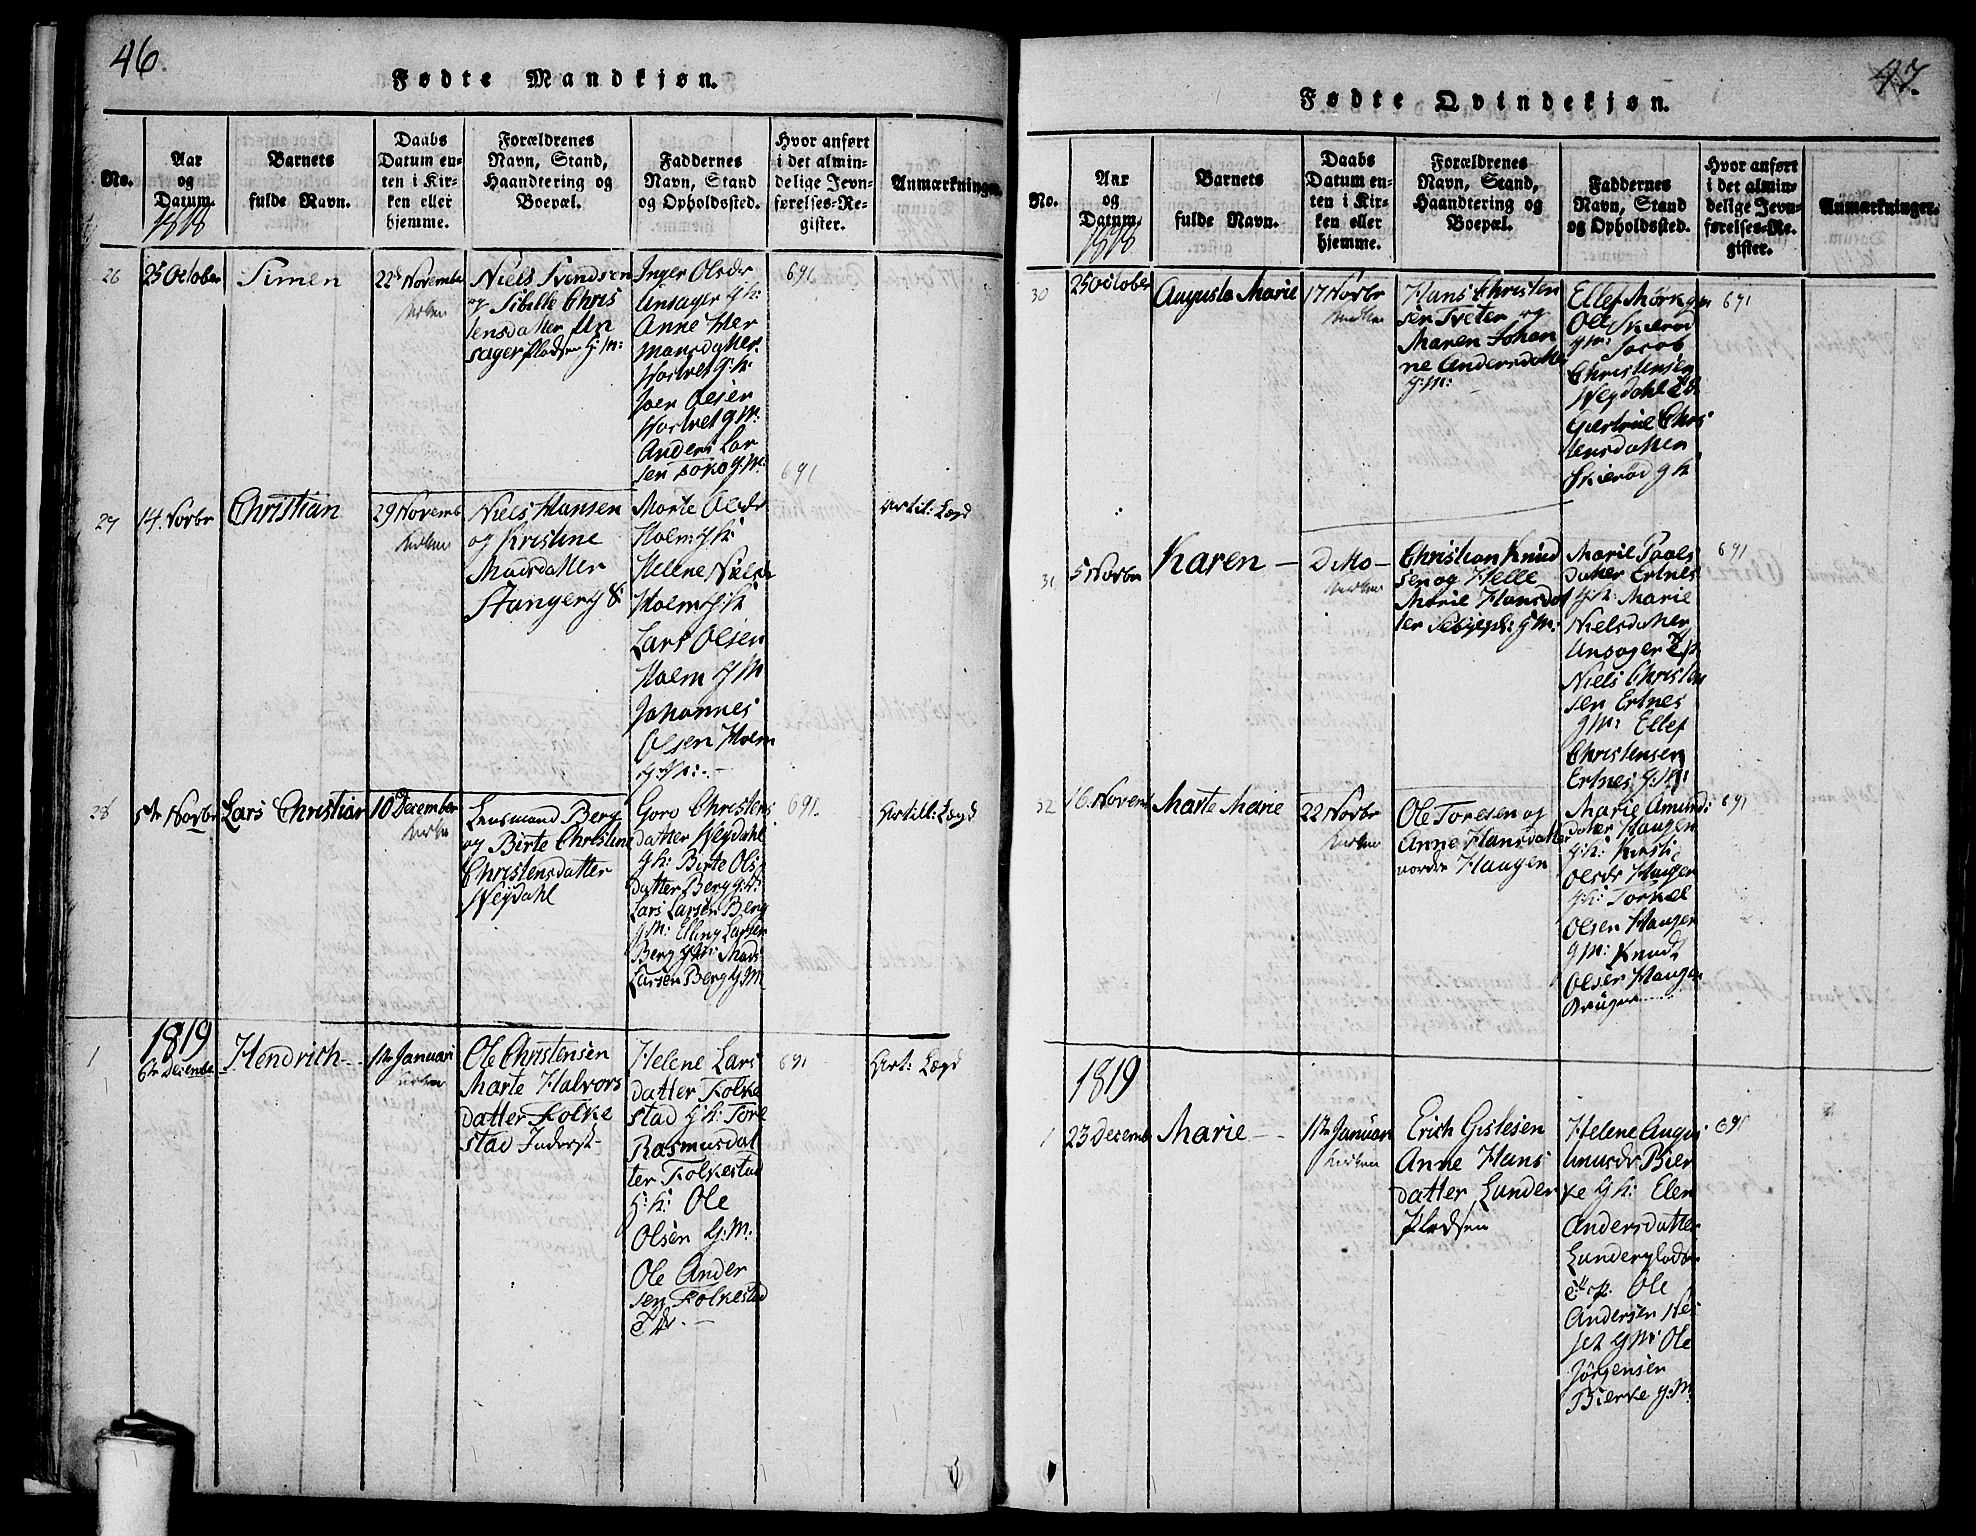 46.
Fødte Mandkjøn.
No.
Aar
og
Datum.
1818
Barnets
fulde Navn.
Daabs
Datum en-
ten i Kir-
ken eller
hjemme.
Forældrenes
Navn, Stand,
Haandtering og
Boepæl.
Faddernes
Navn, Stand
og Opholdssted.
Hvor anført
i det almin-
delige Jevn-
førelses-Re-
gister.
Anmærkninger.
26
25 October
Simen
22 November
Kirken
Niels Svendsen
og Sibille Chris
tensdatter Un
sager Pladsen G: M:
Inger Olsdr
Unsager G: K:
Anne Her
mansdatter
G: K:
Joen Olsen
G: M:
Anders Lar
sen G: M:
691
27
14 Novbr
Christian
29 Novemb
Kirken
Niels Hansen
og Kristine
Madsdatter
Stanger
Marte Olsdr
Holm G K:
Helene Nielsdr
Holm G K
Lars Olsen
Holm G M
Johannes
Olsen Holm
691
Artil: Lægd
28
5te Novbr
Lars Christian
10 December
Kirken
Lensmand Berg
og Birte Christine
Christensdatter
Neydahl
Goro Christens
datter Neydahl
G K: Birte Ols
datter Berg G: K:
Lars Larsen Berg
G M: Elling Larsen
Berg G M: Mads
Larsen Berg G. M
691.
Artill: Lægd
1
1819
6te Decembr
Hendrich
1te Januari
Kirken
Ole Christensen
Marte Halvors
datter Folke
stad Inderst
Helene Lars
datter Folke
stad G K: Tore
Rasmusdat
ter Folkestad
G: K: Ole
Olsen G: M:
Ole Ander
sen Folkestad
691
Art: Lægd
47.
Fødte Qvindekjøn.
No.
Aar
og
Datum.
1818
Barnets
fulde Navn.
Daabs
Datum en-
ten i Kir-
ken eller
hjemme.
Forældrenes
Navn, Stand,
Haandtering og
Boepæl.
Faddernes
Navn, Stand
og Opholdssted.
Hvor anført
i det almin-
delige Jevn-
førelses-Re-
gister.
Anmærkninger.
30
25 October
Augusta Marie
17 Novbr
Kirken
Hans Christen
sen Tveter og
Maren Johan
ne Andersdatter
G: M:
Ellef Mørk gm
Ole Skierød
G M: Jacob
Christensen
Neydahl
Giertrue Chris
tensdatter
Skierød G K
691
31
5 Novbr
Karen
Ditto
Kirken
Christian Knud
sen og Helle
Marie Hansdat
ter G M:
Marie Paals
datter Ertnes
G K: Marie
Nielsdatter
Unsager
Niels Christen
sen Ertnes
G M: Ellef
Christensen
Ertnes G: M:
691
32
16 Novem
Marte Marie
22 Novbr
Kirken
Ole Toresen og
Anne Hansdatter
nordre Haugen
Marie Amund:
datter Haugen
G: K: Kirsti
Olsdr Haugen
G K: Torkel
Olsen Haugen
G M: Knud
Olsen Haugen
Bruger
691
1
1819
23 Decemb
Marie
1te Januari
Kirken
Erich Gislesen
Anne Hans
datter Lunder
Pladsen
Helene Augus
tinusdr Bier
ke G K: Elen
Andersdatter
Lunderplads
Ole
Andersen
G M: Ole
Jørgensen
Bierke G. M.
691